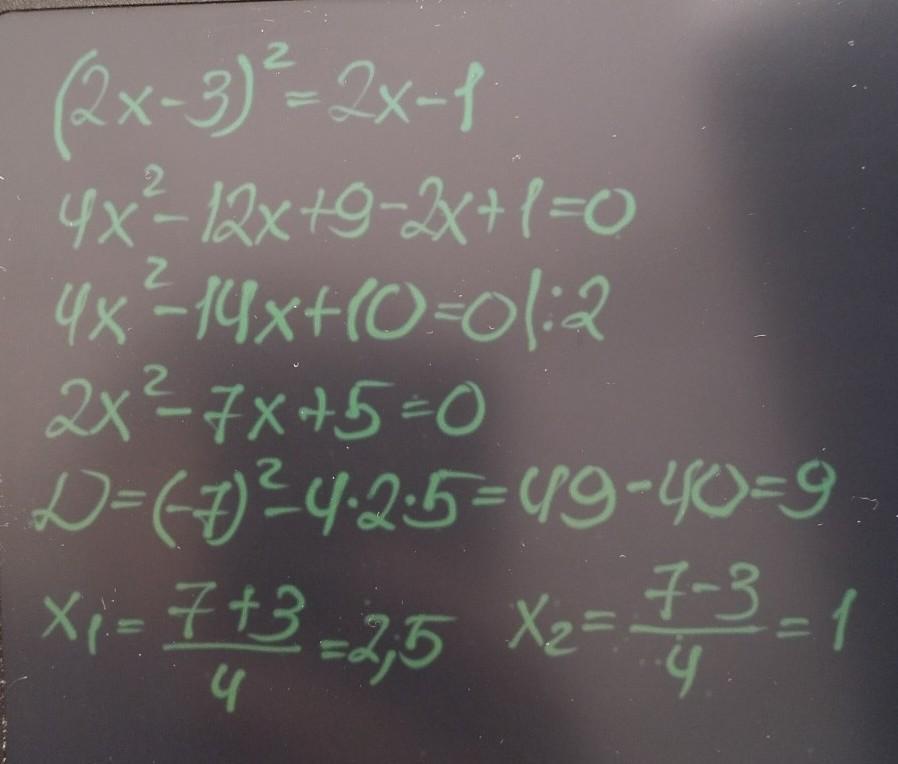 (2x-3)²=2x-1
4x²-12x+9-2x+1=0
4x²-14x+10=0|:2
2x²-7x+5=0
D=(-7)²-4·2·5=49-40=9
x₁=(7+3)/4=2,5 x₂=(7-3)/4=1